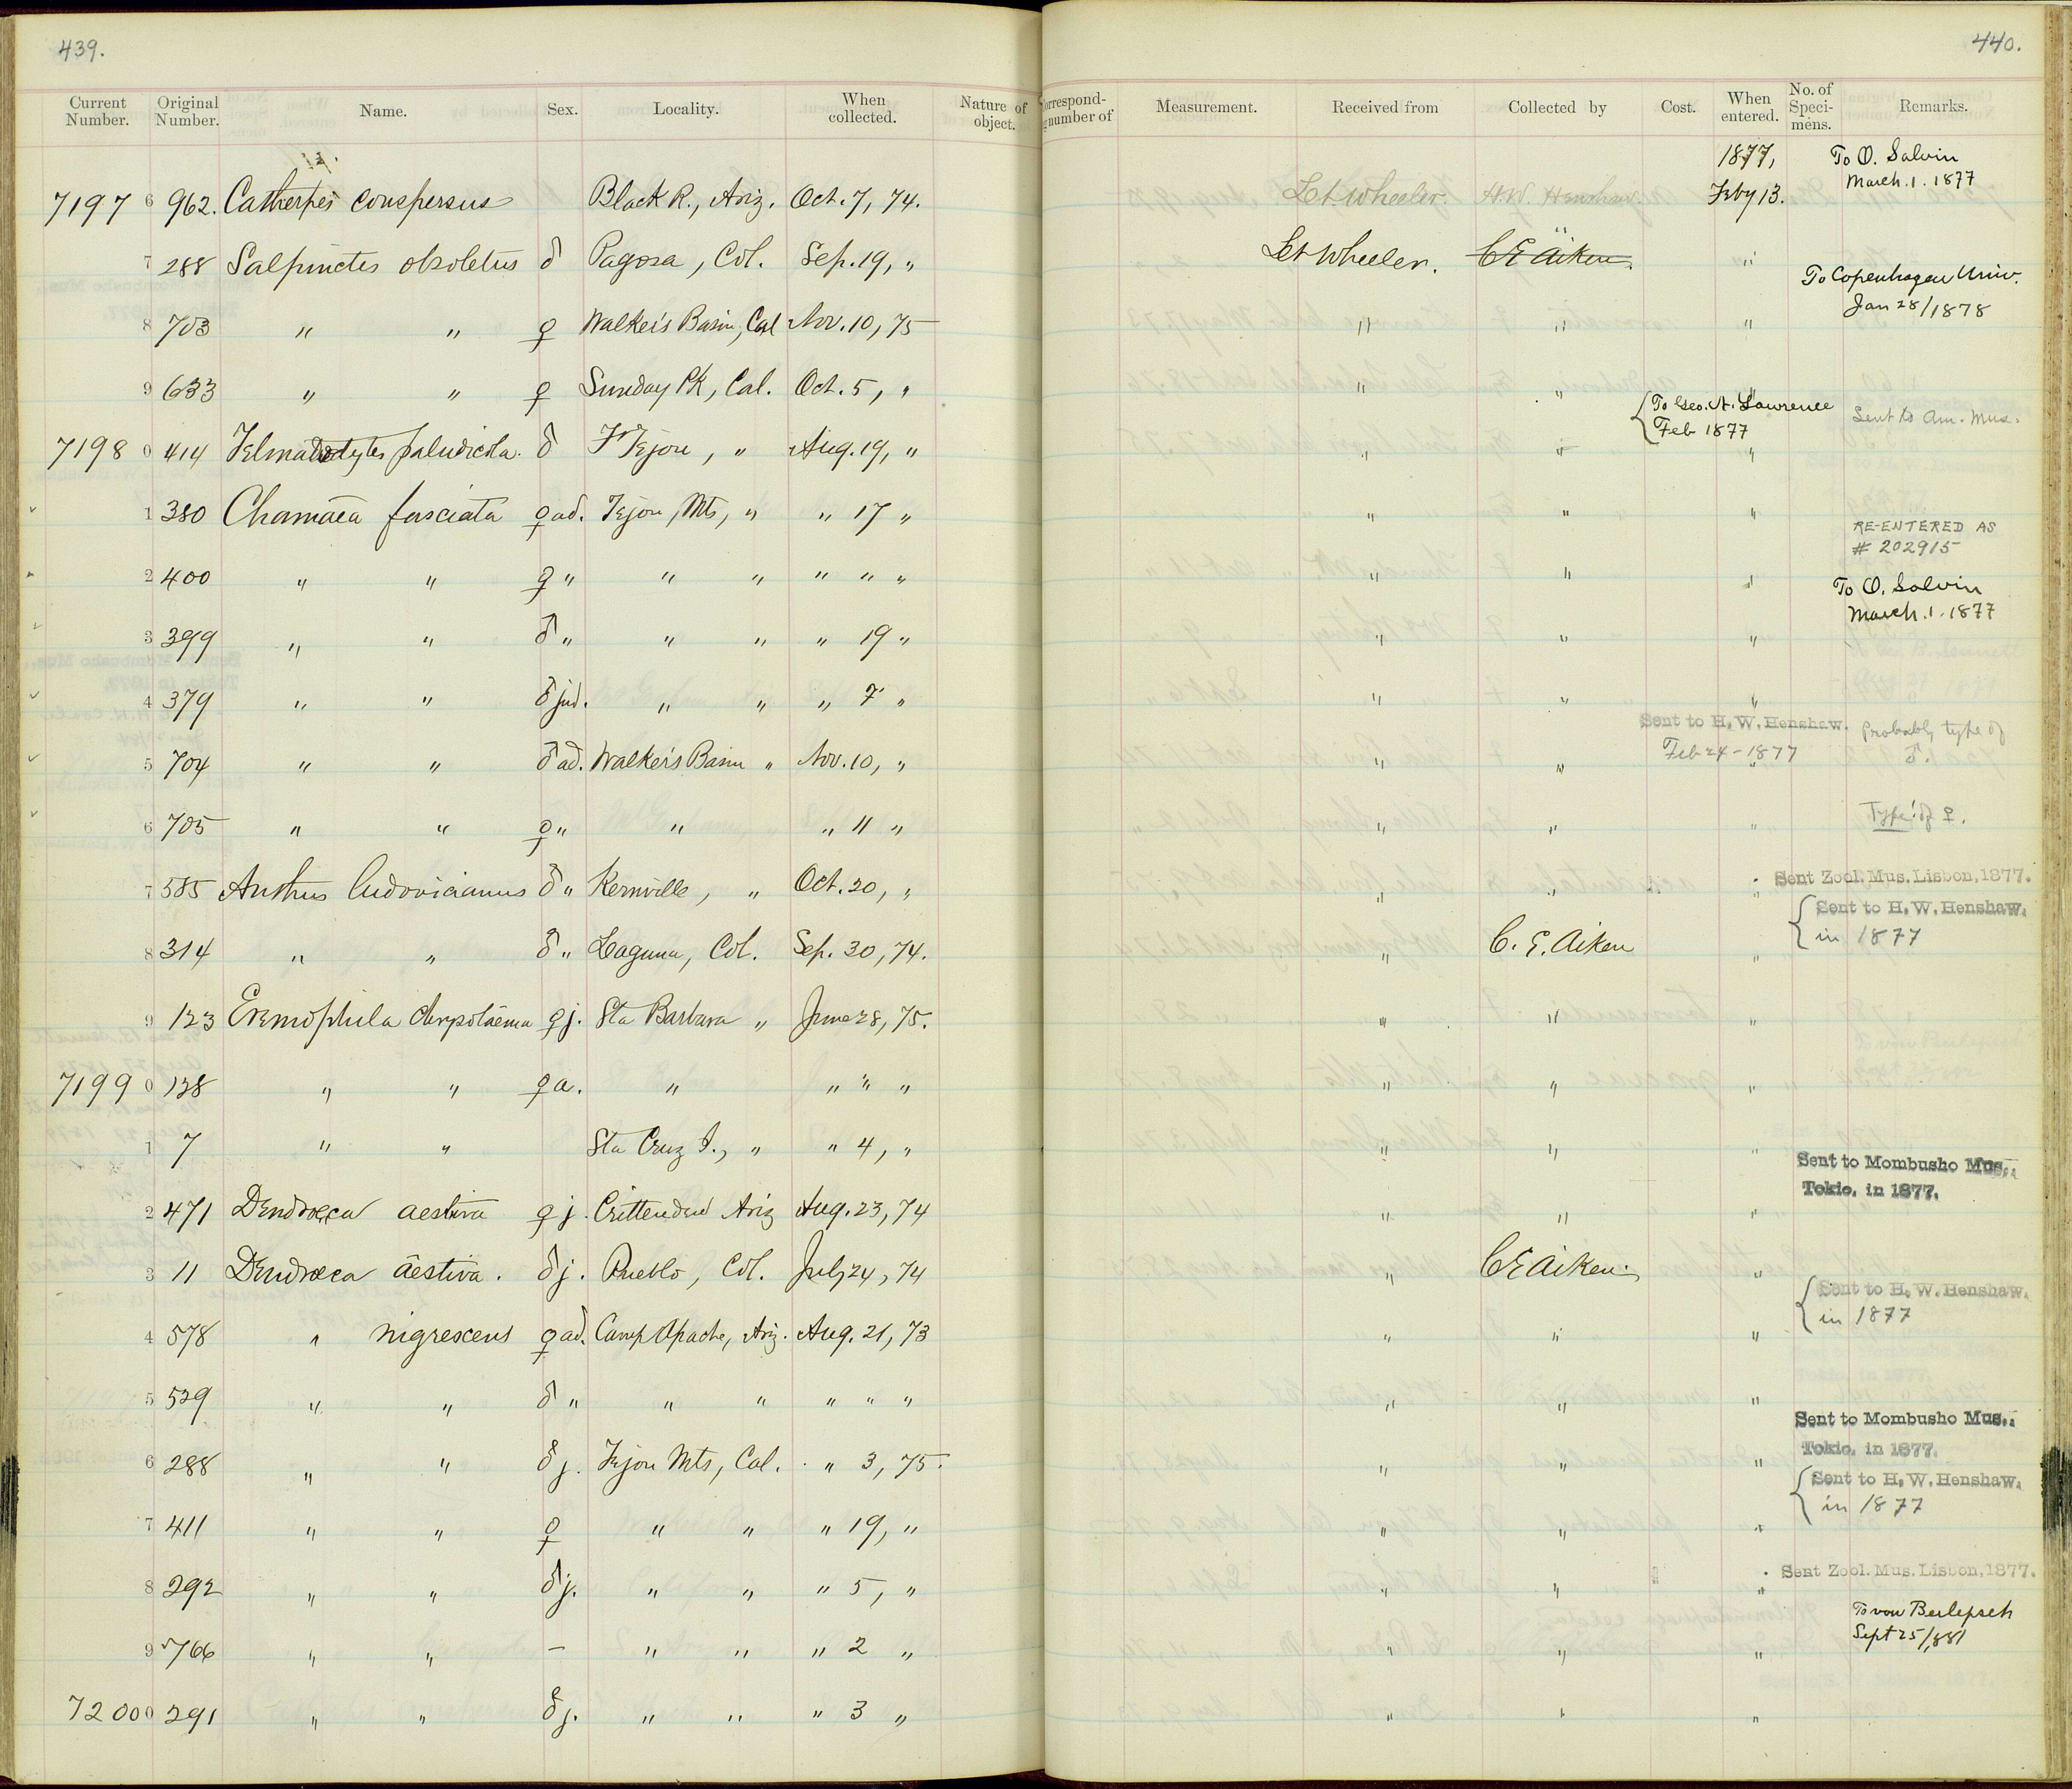 439.
440.
Current Number. Original Number. Name. Sex. Locality. When collected. Nature of object. orrespond- number of Measurement. Received from Collected by Cost. When entered. No. of Speci- mens. Remarks.
1877, To O. Salvin
March. 1. 1877
7197 6 962. Catherpes conspersus Black R., Ariz. Oct. 7, 74. Lt. Wheeler. H.W. Henshaw. Feby 13.
7 288 Salpinctes obsoletus ♂ Pagosa, Col. Sep. 19, " Lt Wheeler. C E Aiken. "
To Copenhagen Univ.
Jan 28/1878
8 703 " " ♀ Walker's Basin, Cal Nov. 10, 75 " " "
9 633 " " ♀ Sunday Pk, Cal. Oct. 5, " " " "
{To Geo. N. Lawrence Sent to Am. Mus.
Feb 1877
7198 0 414 Telmatodytes paludicola. ♂ Ft Tejon, " Aug. 19, " " " "
1 380 Chamaea fasciata ♀ ad. Tejon, Mts, " " 17 " " " "
RE-ENTERED AS
# 202915
2 400 " " ♀ " " " " " " " " "
To O. Salvin
March. 1. 1877
3 399 " " ♂ " " " " 19 " " " "
4 379 " " ♂ juv. " " " 7 " " " "
Sent to H. W. Henshaw. Probably type of
Feb 24-1877 ♂.
5 704 " " ♂ ad. Walker's Basin " Nov. 10, " " " "
6 705 " " ♀ " " " 11 " " " " Type of ♀.
7 585 Anthus ludovicianus ♂ " Kernville, " Oct. 20, " " " " Sent Zool. Mus. Lisbon, 1877.
{Sent to H. W. Henshaw.
in 1877
8 314 " " ♂ " Laguna, Col. Sep. 30, 74. " C. E. Aiken "
9 123 Eremophila chrysolaema ♀ j. Sta Barbara " June 28, 75. " " "
7199 0 128 " " ♀ a. " " " " " " "
1 7 " " Sta Cruz I., " " 4, " " " "
Sent to Mombusho Mus.
Tokio. in 1877.
2 471 Dendroeca aestiva ♀ j. Crittenden Ariz Aug. 23, 74 " " "
3 11 Dendroeca aestiva. ♂ j. Pueblo, Col. July 24, 74 " C E Aiken. "
{Sent to H. W. Henshaw.
in 1877
4 578 " nigrescens ♀ ad. Camp Apache, Ariz. Aug. 21, 73 " " "
5 529 " " ♂ " " " " " " " " "
Sent to Mombusho Mus.
Tokio. in 1877.
6 288 " " ♂ j. Tejon Mts, Cal. " 3, 75. " " "
{Sent to H. W. Henshaw.
in 1877
7 411 " " ♀ " " " 19, " " " "
8 292 " " ♂ j. " " " 5, " " " " Sent Zool. Mus. Lisbon, 1877.
To von Berlepsch
Sept 25/1881
9 766 " " — " " " 2 " " " "
7200 0 291 " " ♂ j. " " " 3 " " " "